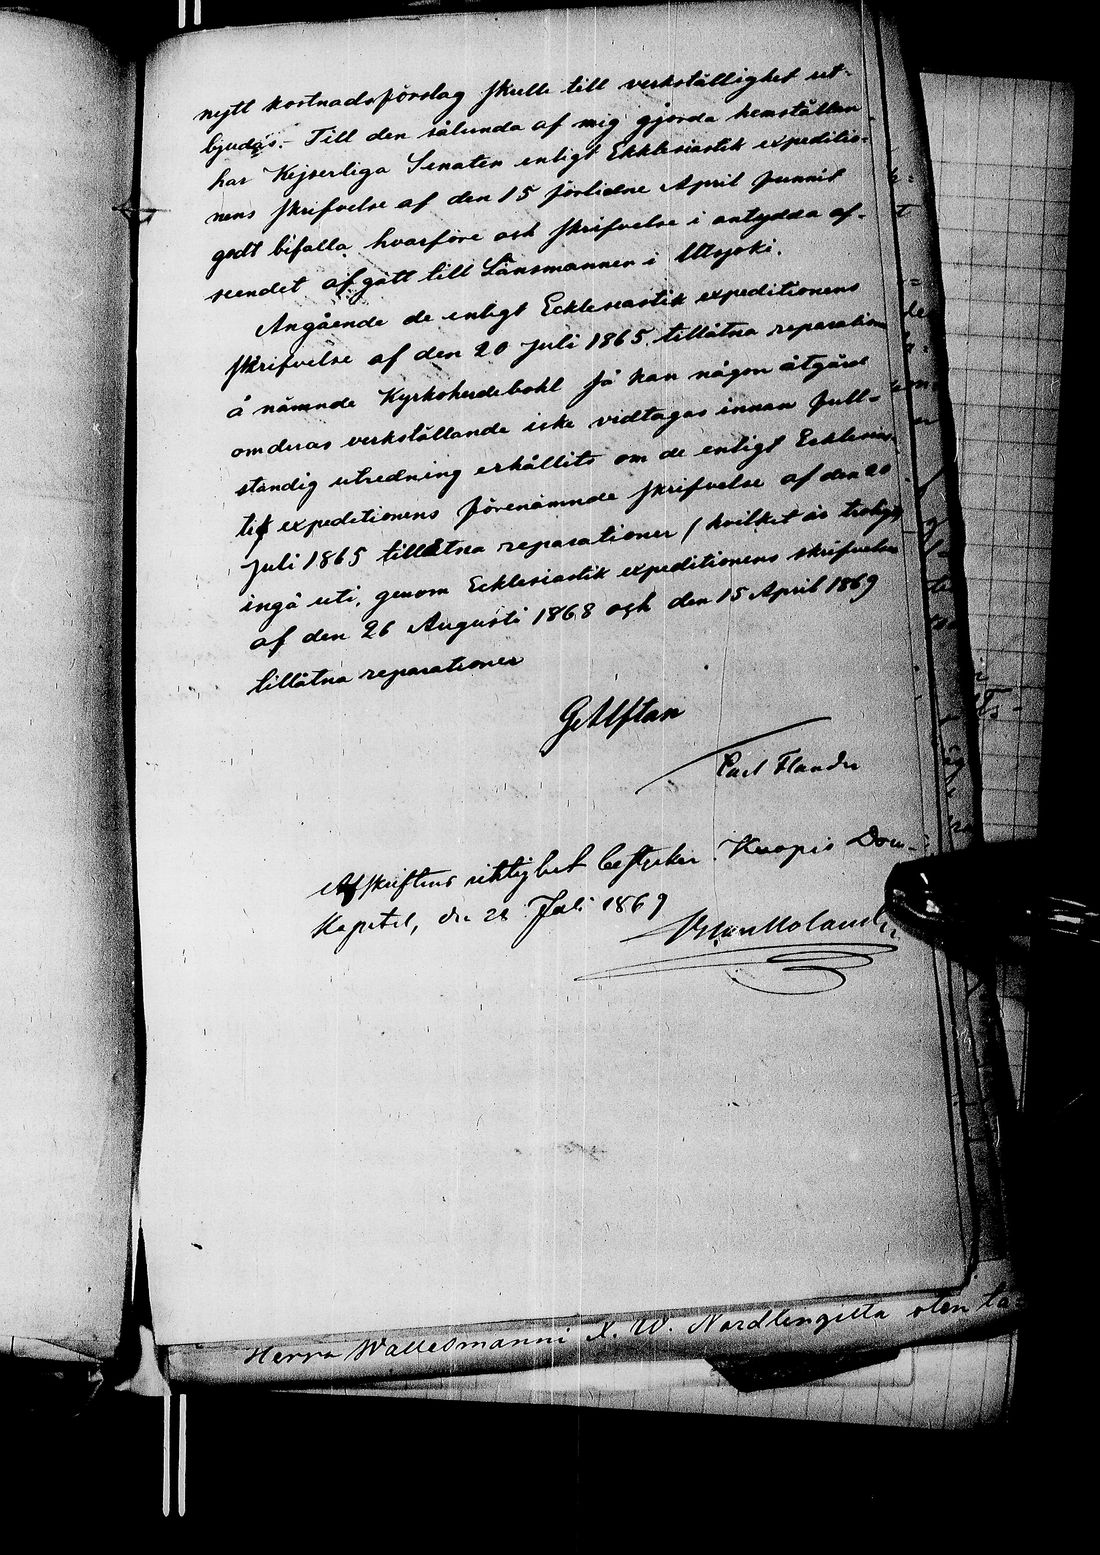 nytt kostnadsförslag skulle till verkställighet ut-
bjudas.- Till den sålunda af mig gjorda hemställan
har Kejserliga Senaten enligt Ekklesiastik expeditio-
nens skrifvelse af den 15 förlidne April funnit
godt bifalla, hvarföre och skrifvelse i antydda af-
seendet afgått till Länsmannen i Utsjoki.
Angående de enligt Ecklesiastik expeditionens
skrifvelse af den 20 Juli 1865 tillåtna reparation
å nämnde Kyrkoherdebohl så kan någon åtgärd
om deras verkställande icke vidtagas innan full-
ständig utredning erhållits om de enligt Ecklesias-
tik expeditionens förenämnde skrifvelse af den 20
Juli 1865 tillåtna reparationer / hvilket är troligt
ingå uti, genom Ecklesiastik expeditionens skrifvelse
af den 26 Augusti 1868 och den 15 April 1869
tillåtna reparationer
G Alftan
Carl Flander
Afskriftens riktighet bestyrker. Kuopio Dom-
Kapitel, den 28 Juli 1869
Molander
Herra Wallesmanni N. W. Nordlengilta oten ta=